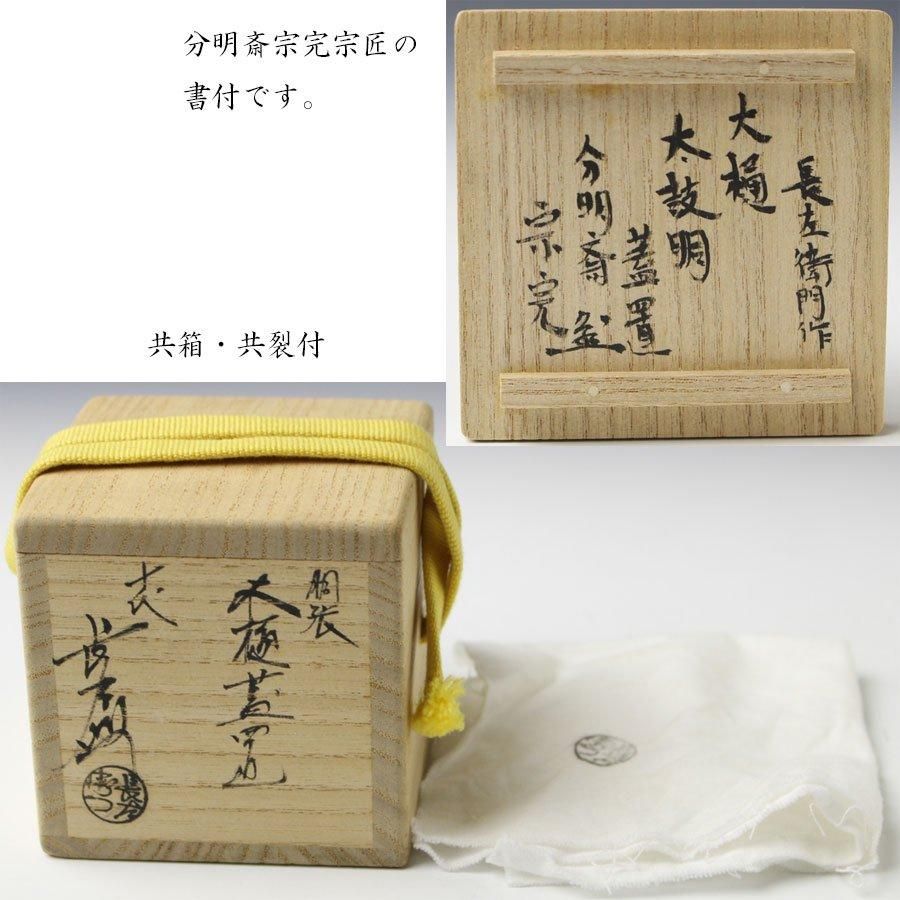 分明斎宗完宗匠の
書付です。
共箱・共裂付
長左衛門作
大樋
太鼓胴
蓋置
分明斎
宗完
胴張
大樋蓋置
十代
長左衛門